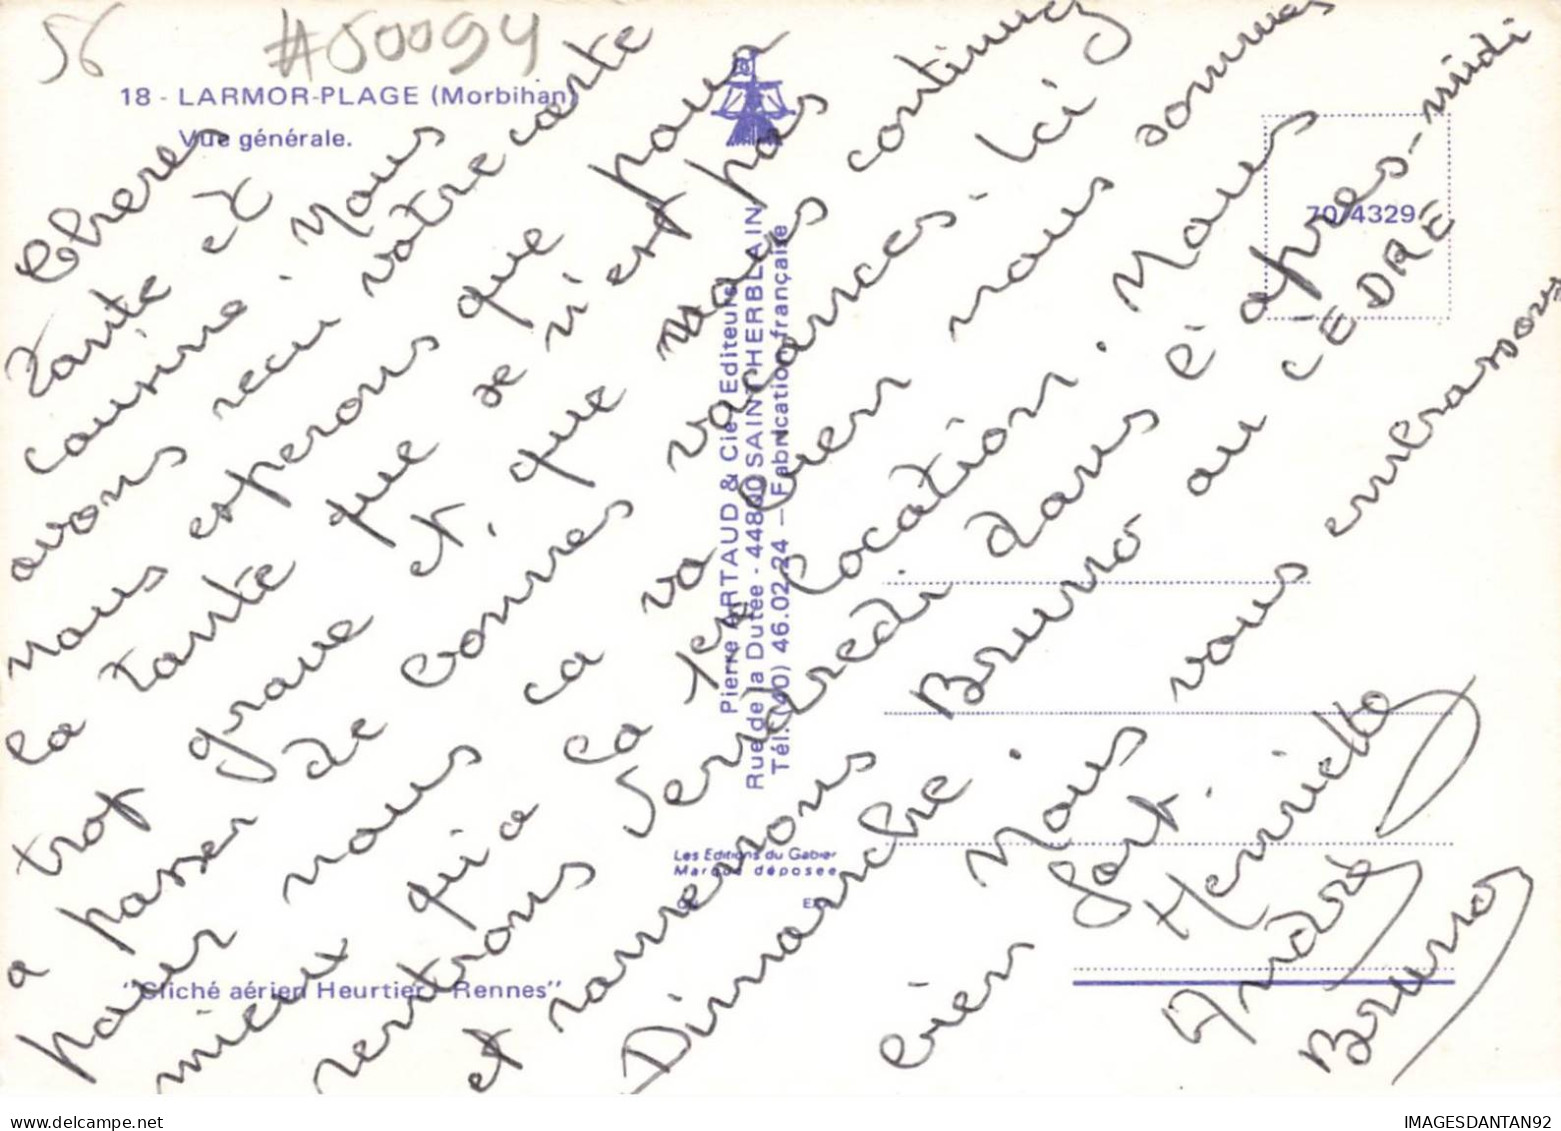 56
#50094
18 - LARMOR-PLAGE (Morbihan)
Vue générale.
Cheres
Tante et
cousine. Nous
avons recu votre carte
nous esperons que pour
la tante que se n'est pas
trop grave et, que vous continuez
a passer de bonnes vacances. Ici
pour nous ca va bien nous sommes
mieux qu'a la 1ere location. Nous
rentrons Vendredi dans l'après-midi
et ramenons Bruno au CÈDRE
Dimanche. Nous vous embrassons
bien fort.
Henriette
André
Bruno
Pierre ARTAUD & Cie Editeurs
Rue de la Dutée - 44800 SAINT-HERBLAIN
Tél. (40) 46.02.24 — Fabrication française
70/4329
Les Editions du Gabier
Marque déposée
"Cliché aérien Heurtier - Rennes"
IMAGESDANTAN92